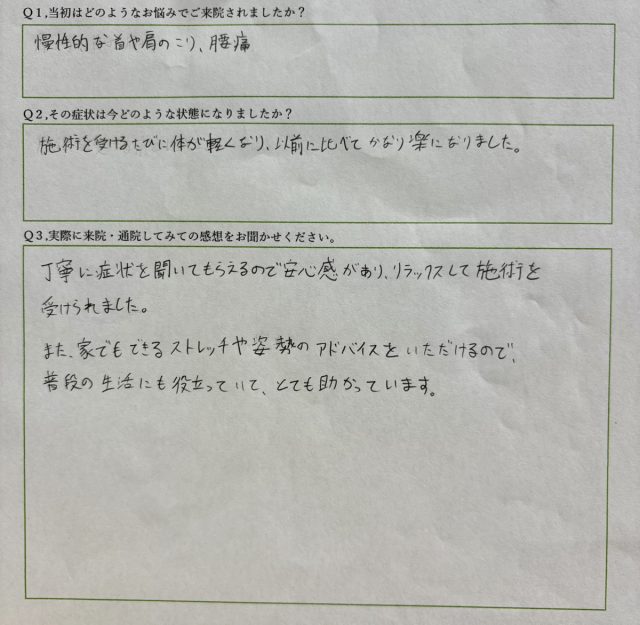 Q1,当初はどのようなお悩みでご来院されましたか？
慢性的な首や肩のこり、腰痛
Q2,その症状は今どのような状態になりましたか？
施術を受けるたびに体が軽くなり、以前に比べてかなり楽になりました。
Q3,実際に来院・通院してみての感想をお聞かせください。
丁寧に症状を聞いてもらえるので安心感があり、リラックスして施術を
受けられました。
また、家でもできるストレッチや姿勢のアドバイスをいただけるので、
普段の生活にも役立っていて、とても助かっています。